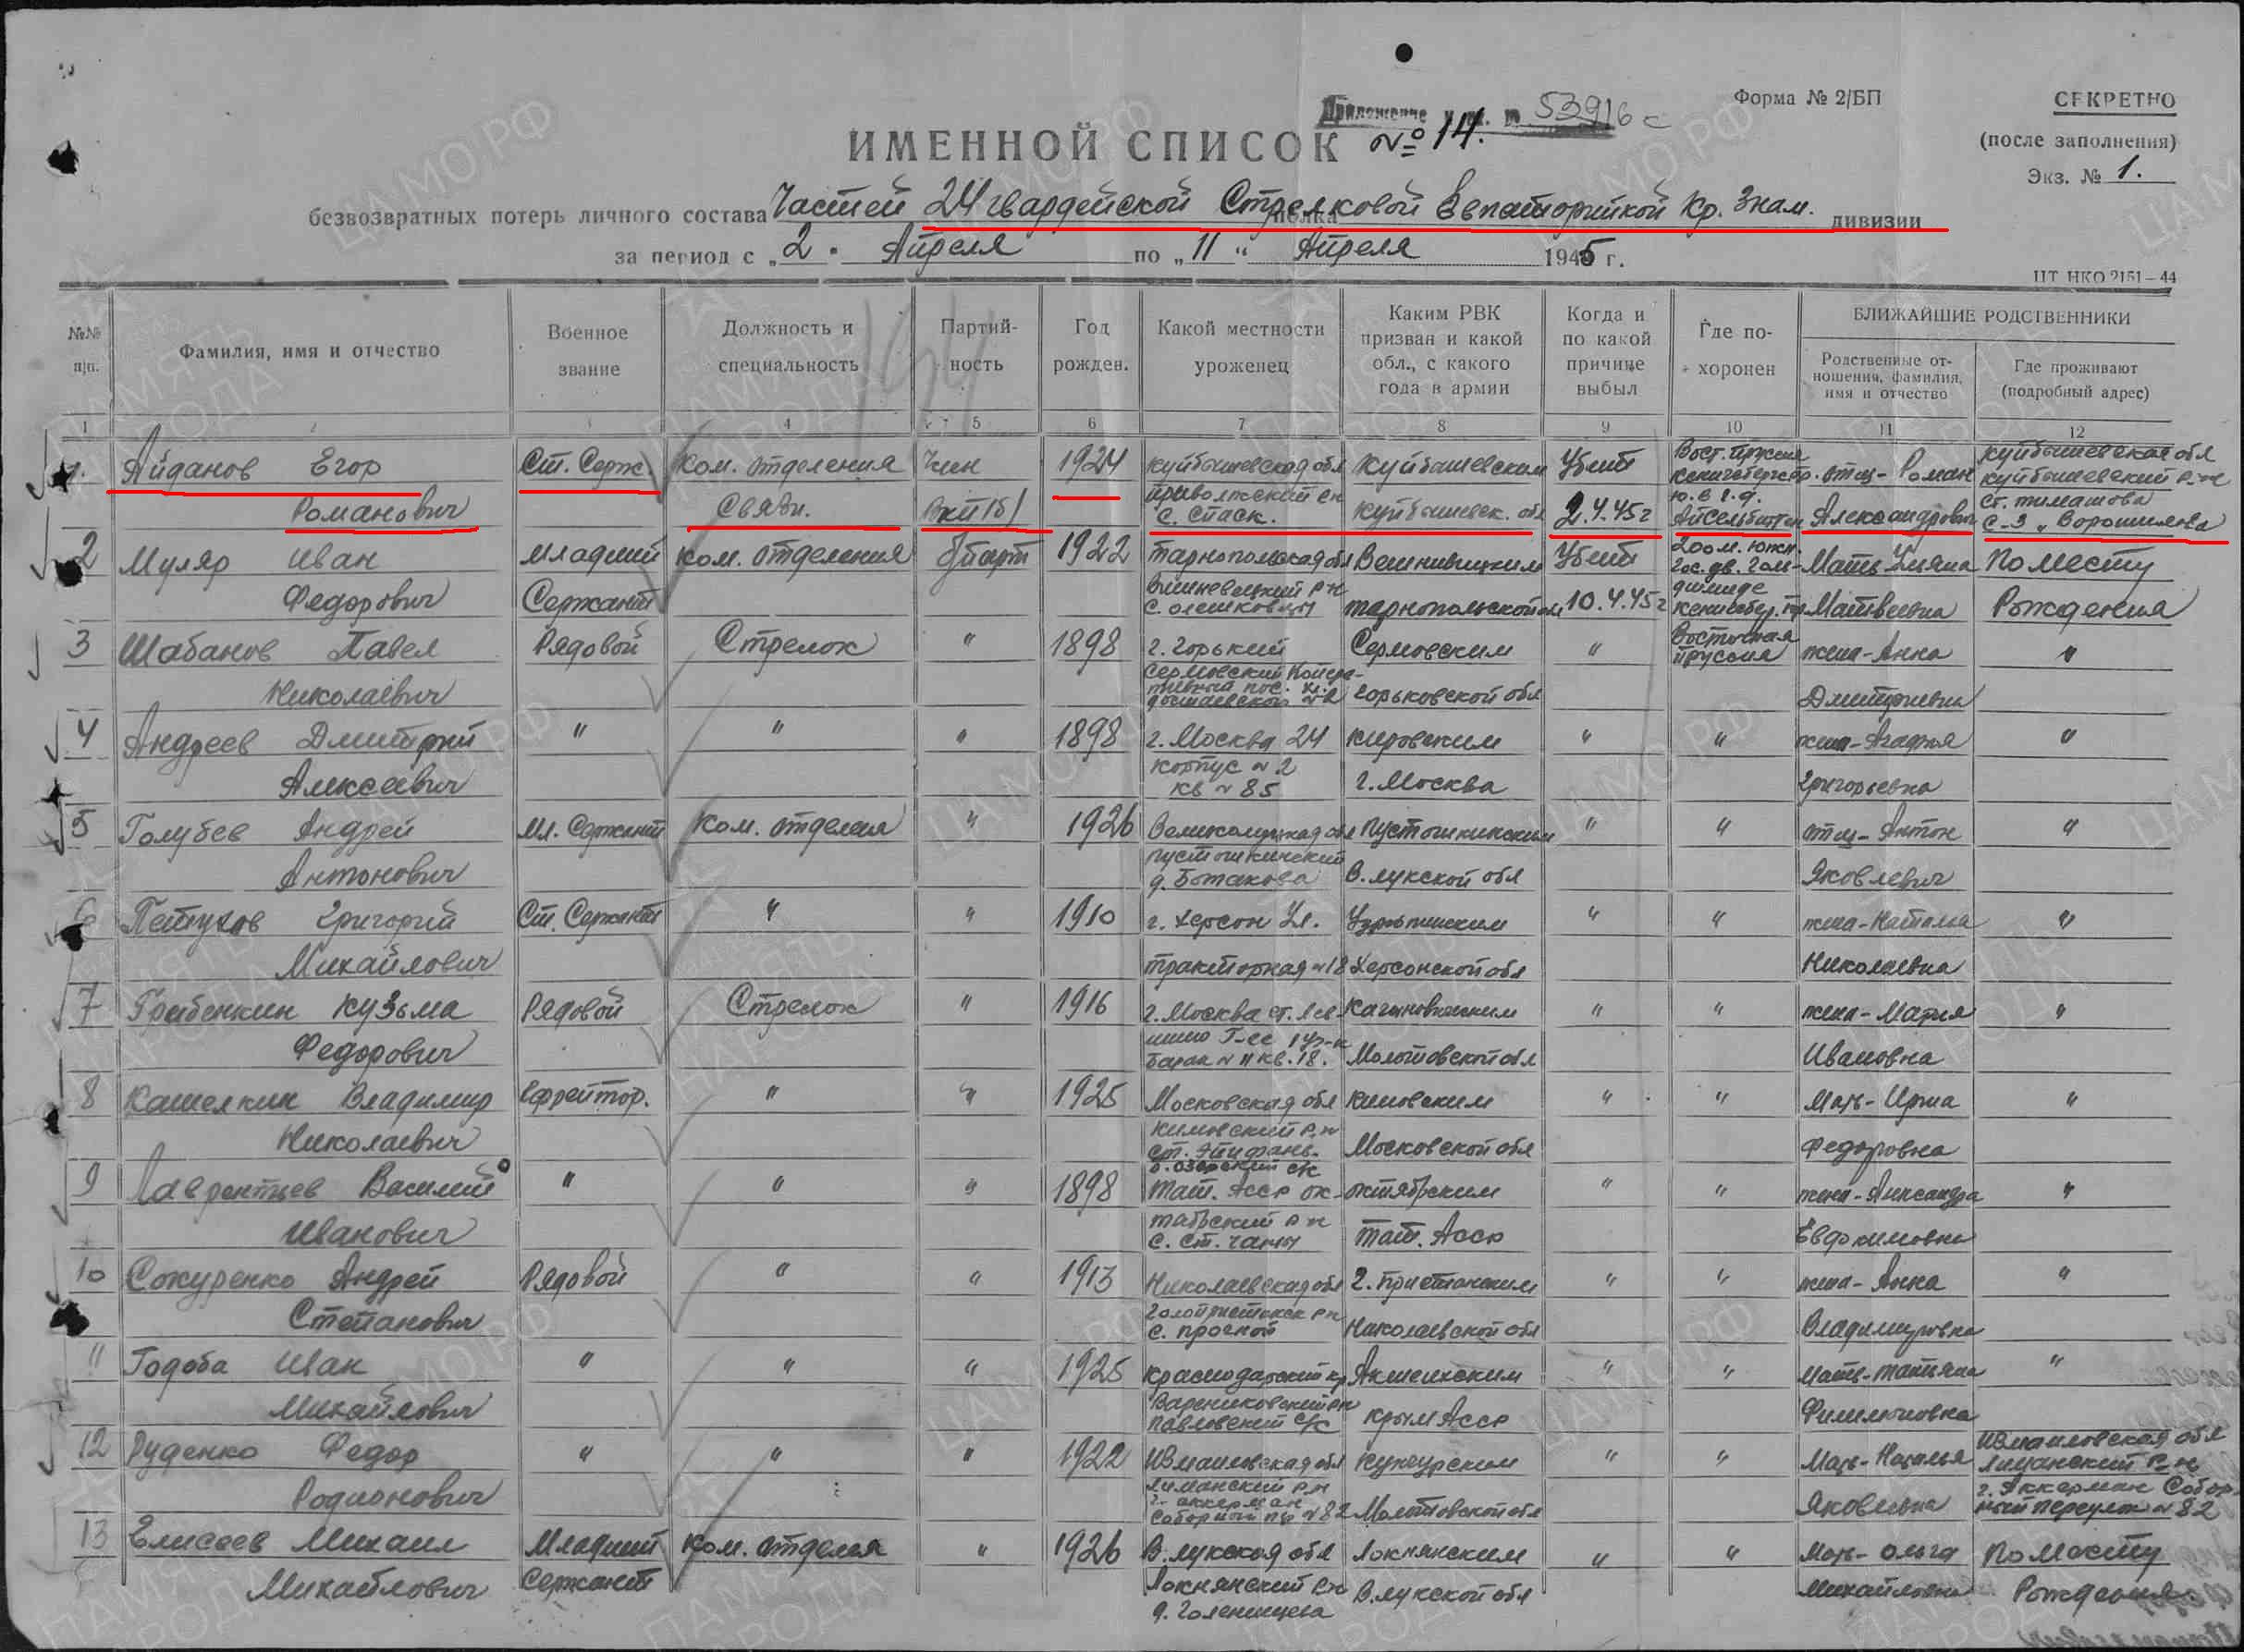 Форма № 2/БП
СЕКРЕТНО
Приложение 53916 с
(после заполнения)
ИМЕННОЙ СПИСОК № 14.
Экз. № 1.
безвозвратных потерь личного состава Частей 24 гвардейской Стрелковой Евпаторийской Кр. Знам. дивизии
за период с „2" Апреля по „11" Апреля 1945 г.
ЦТ НКО 2151—44
№№ п|п.
Фамилия, имя и отчество
Военное звание
Должность и специальность
Партий-
ность
Год рожден.
Какой местности уроженец
Каким РВК призван и какой обл., с какого года в армии
Когда и по какой причине выбыл
Где по-
хоронен
БЛИЖАЙШИЕ РОДСТВЕННИКИ
Родственные от-
ношения, фамилия, имя и отчество
Где проживают (подробный адрес)
1 2 3 4 5 6 7 8 9 10 11 12
1. Айданов Егор Ст. Серж. Ком. отделения Член 1924 Куйбышевская обл Куйбышевским Убит Вост. Пруссия отец - Роман Куйбышевская обл
Куйбышевский р-н
Романович Связи. ВКП(б) с. Спасск. Куйбышевск. обл 2.4.45г Александрович ст. Тимашова
с-з „Ворошилова
2 Муляр Иван Младший Ком. отделения б/парт 1922 Тарнопольская обл Убит Мать Ульяна По месту
Федорович Сержант Тарнопольской обл 10.4.45г Матвеевна Рождения
3 Шабанов Павел Рядовой Стрелок " 1898 г. Горький Сермовским " Восточная Пруссия жена - Анна "
Николаевич Горьковской обл Дмитриевна
4 Андреев Дмитрий " " " 1898 г. Москва 24 Кировским " " жена - Агафья "
Алексеевич корпус № 2 кв № 85 г. Москва Григорьевна
5 Голубев Андрей Мл. Сержант Ком. отделен " 1926 Великолукская обл Пустошкинским " " отец - Антон "
Антонович Пустошкинский В. лукской обл Яковлевич
6 Петухов Григорий Ст. Сержант " " 1910 г. Херсон ул. " " жена - Наталья "
Михайлович Тракторная № 18 Херсонской обл Николаевна
7 Гребенкин Кузьма Рядовой Стрелок " 1916 г. Москва " " жена - Мария "
Федорович Барак № 11 кв. 18. Молотовской обл Ивановна
8 Кашелкин Владимир Ефрейтор. " " 1925 Московская обл Кимовским " " Мать - Ирина "
Николаевич Кимовский р-н ст. Епифань Московской обл Федоровна
9 Лаврентьев Василий " " " 1898 Тат. Асср ок- Октябрьским " " жена - Александра "
Иванович Тат. Асср Евдокимовна
10 Сокуренко Андрей Рядовой " " 1913 Николаевская обл Г. Пристанским " " жена - Анна "
Степанович Николаевской обл Владимировна
11 Годоба Иван " " " 1925 Краснодарский кр " " Мать - Татьяна "
Михайлович Павловский с/с Крым Асср
12 Руденко Федор " " " 1922 Измаиловская обл Кунгурским " " Мать - Наталья Измаиловская обл
Лиманский р-н
Родионович Лиманский р-н г. Аккерман Соборный пер № 82 Молотовской обл Яковлевна г. Аккерман Собор-
ный переулок № 82
13 Елисеев Михаил Младший Ком. отделен " 1926 В. лукская обл Локнянским " " Мать - Ольга По месту
Михайлович Сержант Локнянский р-н В. лукской обл Михайловна Рождения
ЦАМО.РФ
ПАМЯТЬ НАРОДА